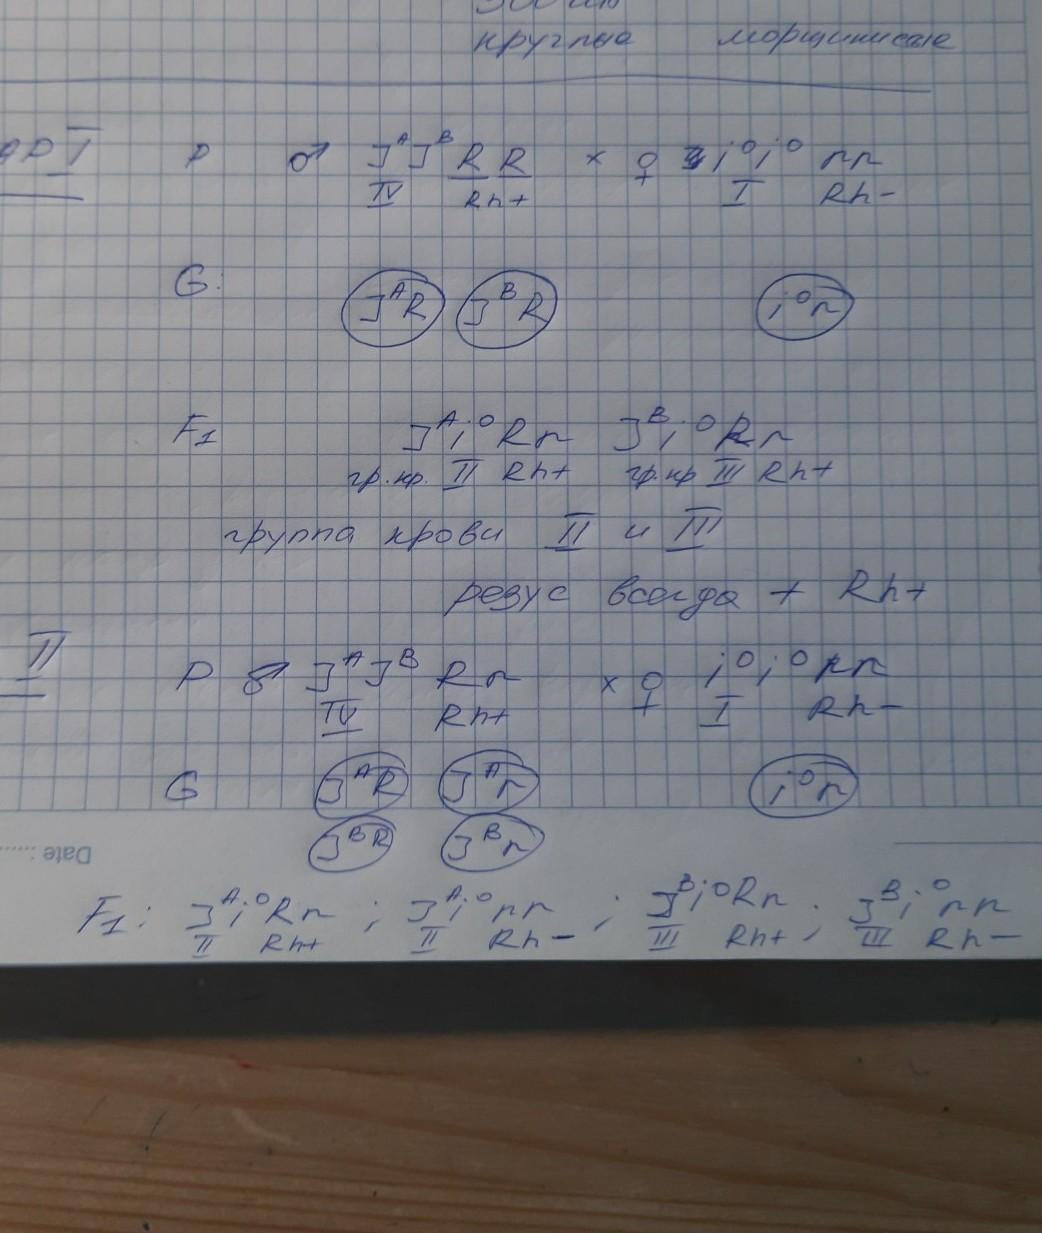 круглые морщинистые
I P ♂ JᴬJᴮ R R × ♀ i⁰i⁰ rr
IV Rh+ I Rh-
G: JᴬR JᴮR i⁰r
F₁ Jᴬi⁰Rr Jᴮi⁰Rr
гр.кр. II Rh+ гр.кр III Rh+
группа крови II и III
резус всегда + Rh+
II P ♂ JᴬJᴮ Rr × ♀ i⁰i⁰ rr
IV Rh+ I Rh-
G JᴬR Jᴬr i⁰r
JᴮR Jᴮr
Date :......
F₁: Jᴬi⁰Rr ; Jᴬi⁰rr ; Jᴮi⁰Rr ; Jᴮi⁰rr
II Rh+ II Rh- III Rh+ III Rh-